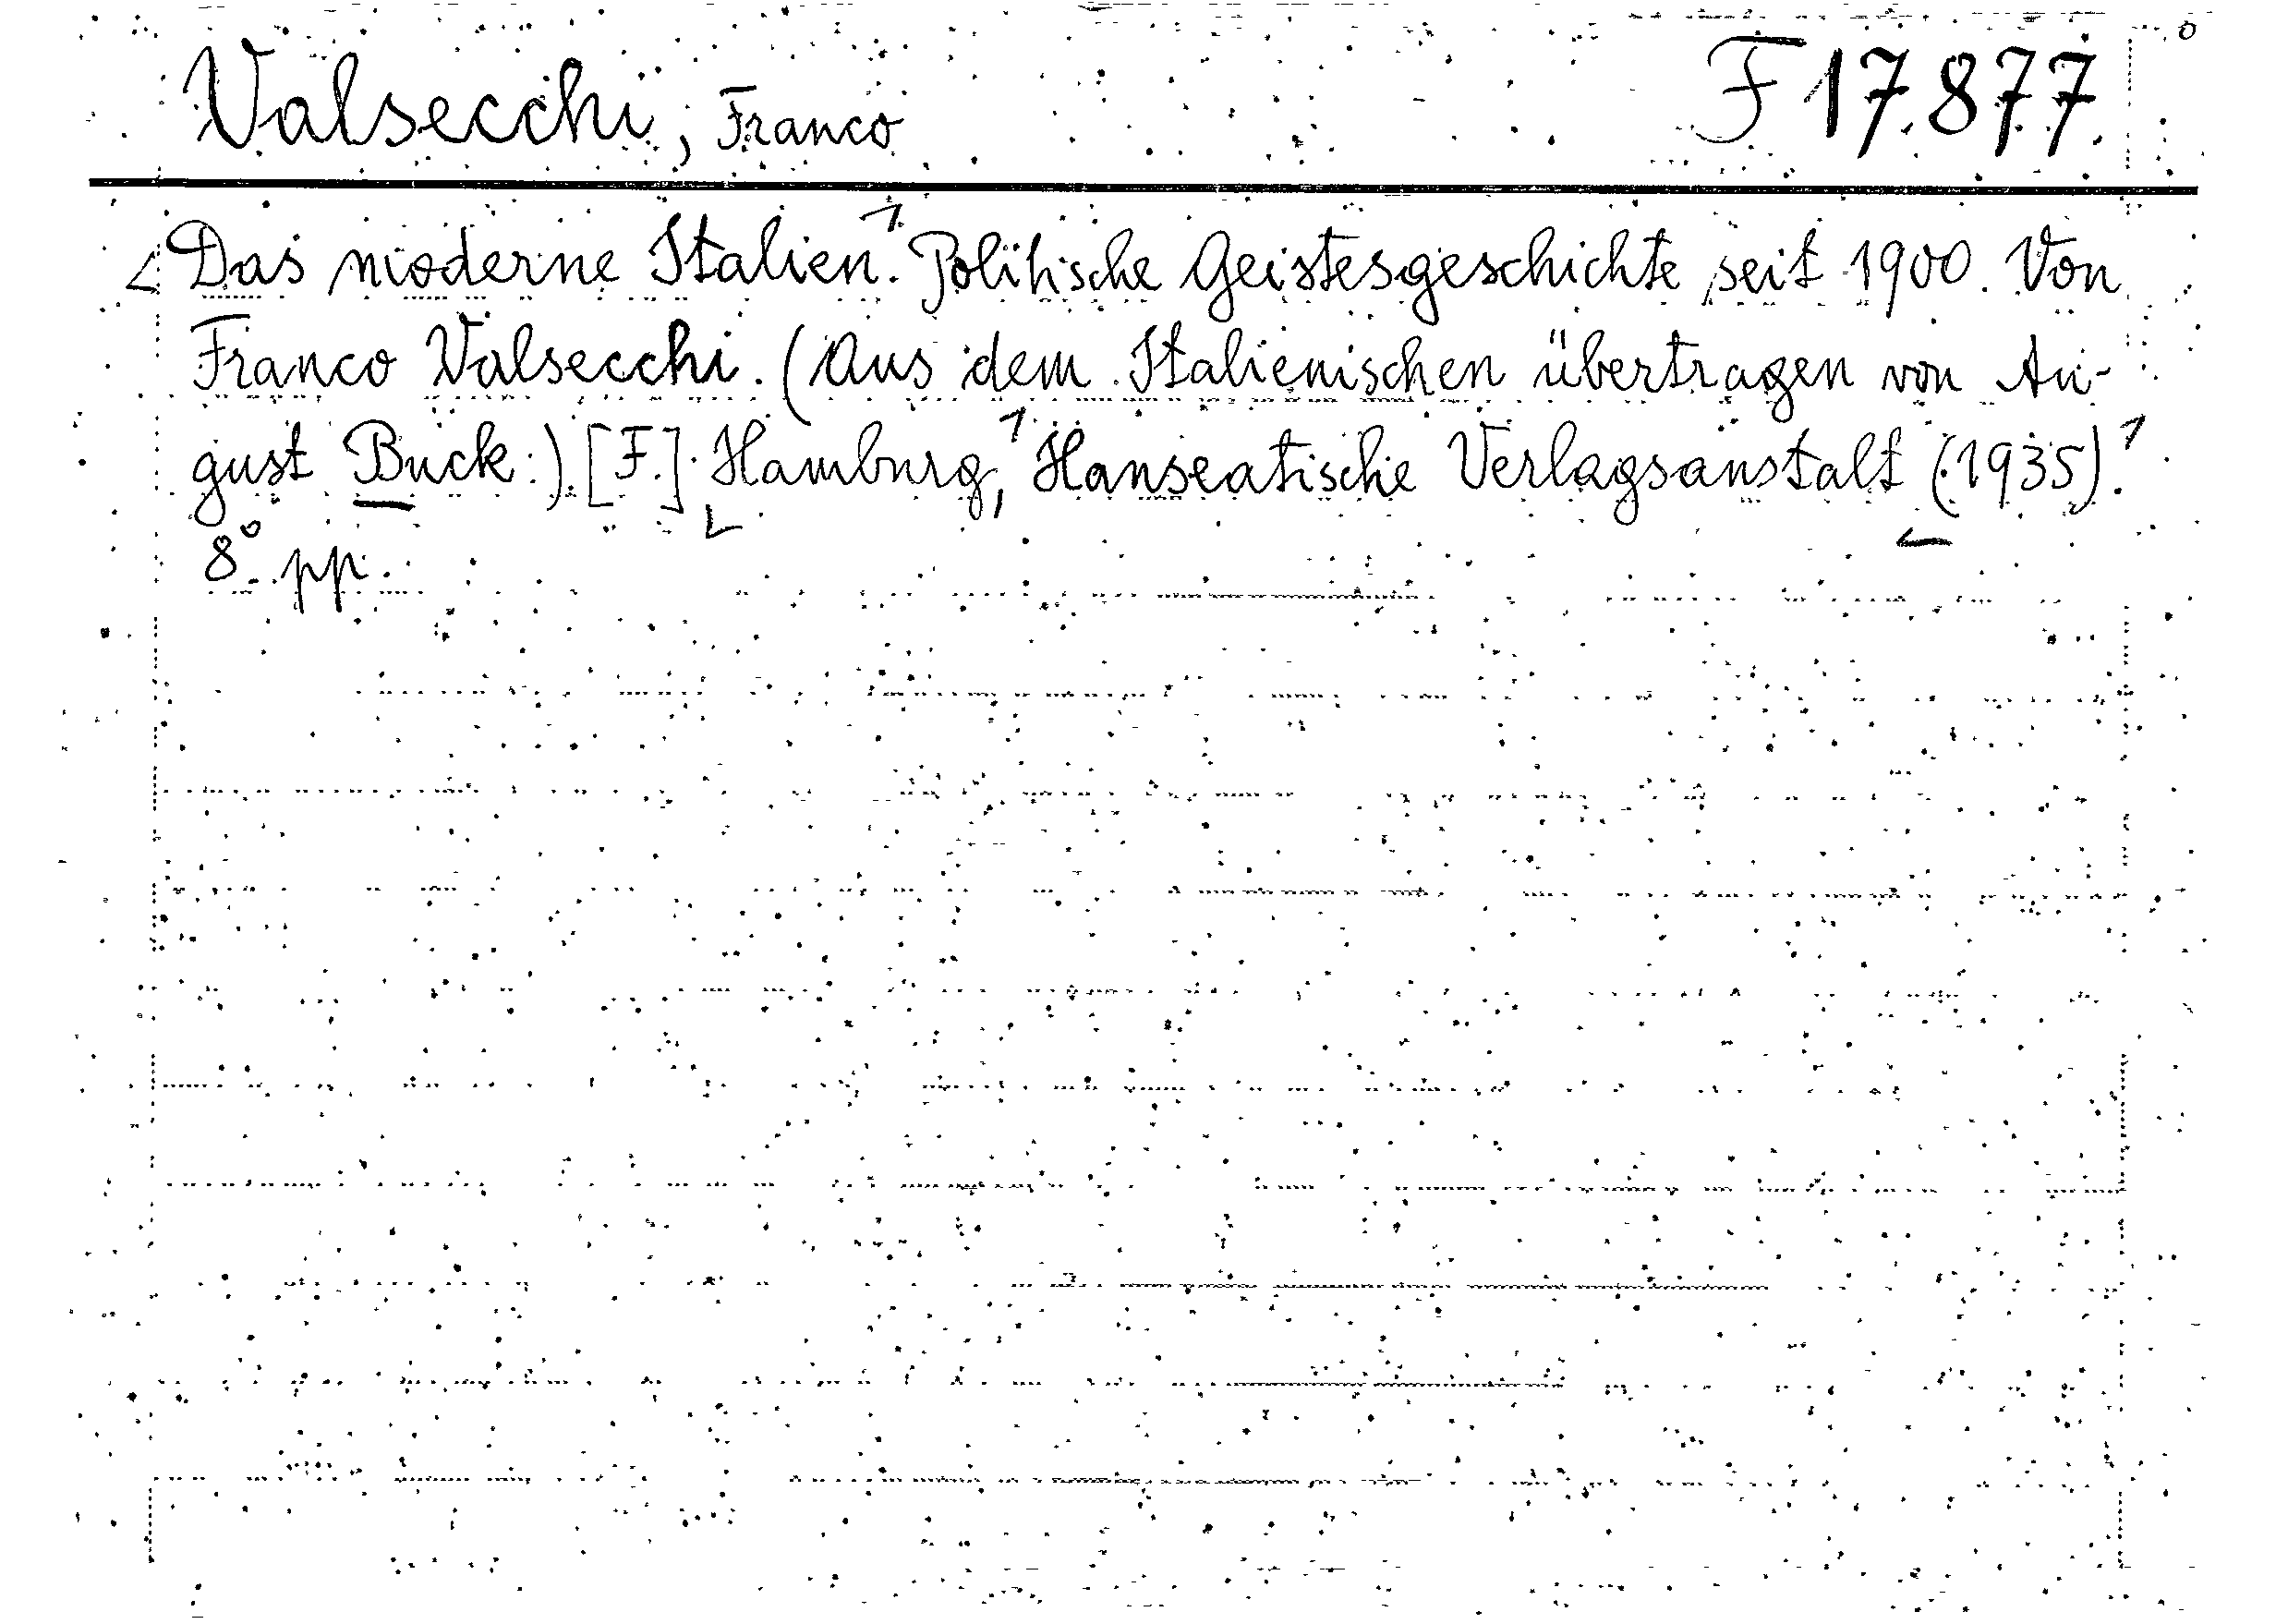 Valsecchi, Franco F 17.877.
Das moderne Italien. Politische Geistesgeschichte seit 1900. Von
Franco Valsecchi. (Aus dem Italienischen übertragen von Au-
gust Buck.) [F.] Hamburg, Hanseatische Verlagsanstalt (1935).
8° pp.